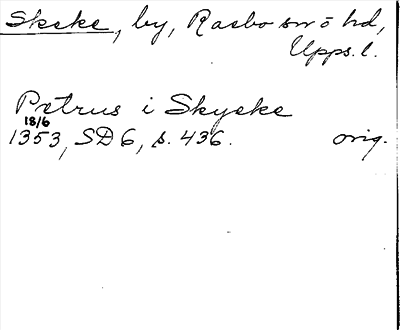 Skeke, by, Rasbo sn ö hd,
Upps. l.
Petrus i Skyeke
18/6
1353, SD 6, s. 436. orig.